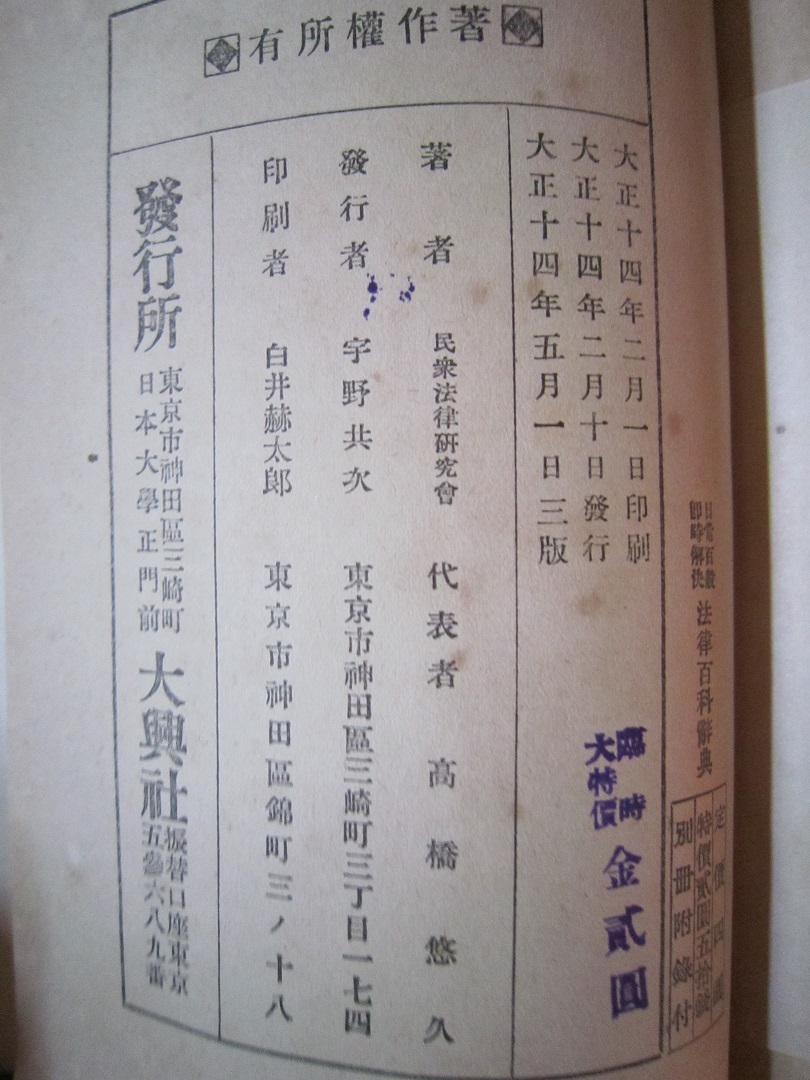 著作權所有
日常百般
即時解決
法律百科辭典
定價四圓
特價貳圓五拾錢
別冊附錄付
大正十四年二月一日印刷
大正十四年二月十日發行
大正十四年五月一日三版
臨時
大特價
金貳圓
著者 民衆法律研究會 代表者 高橋悠久
發行者 宇野共次 東京市神田區三崎町三丁目一七四
印刷者 白井赫太郎 東京市神田區錦町三ノ十八
發行所
東京市神田區三崎町
日本大學正門前
大興社
振替口座東京
五參六八九番